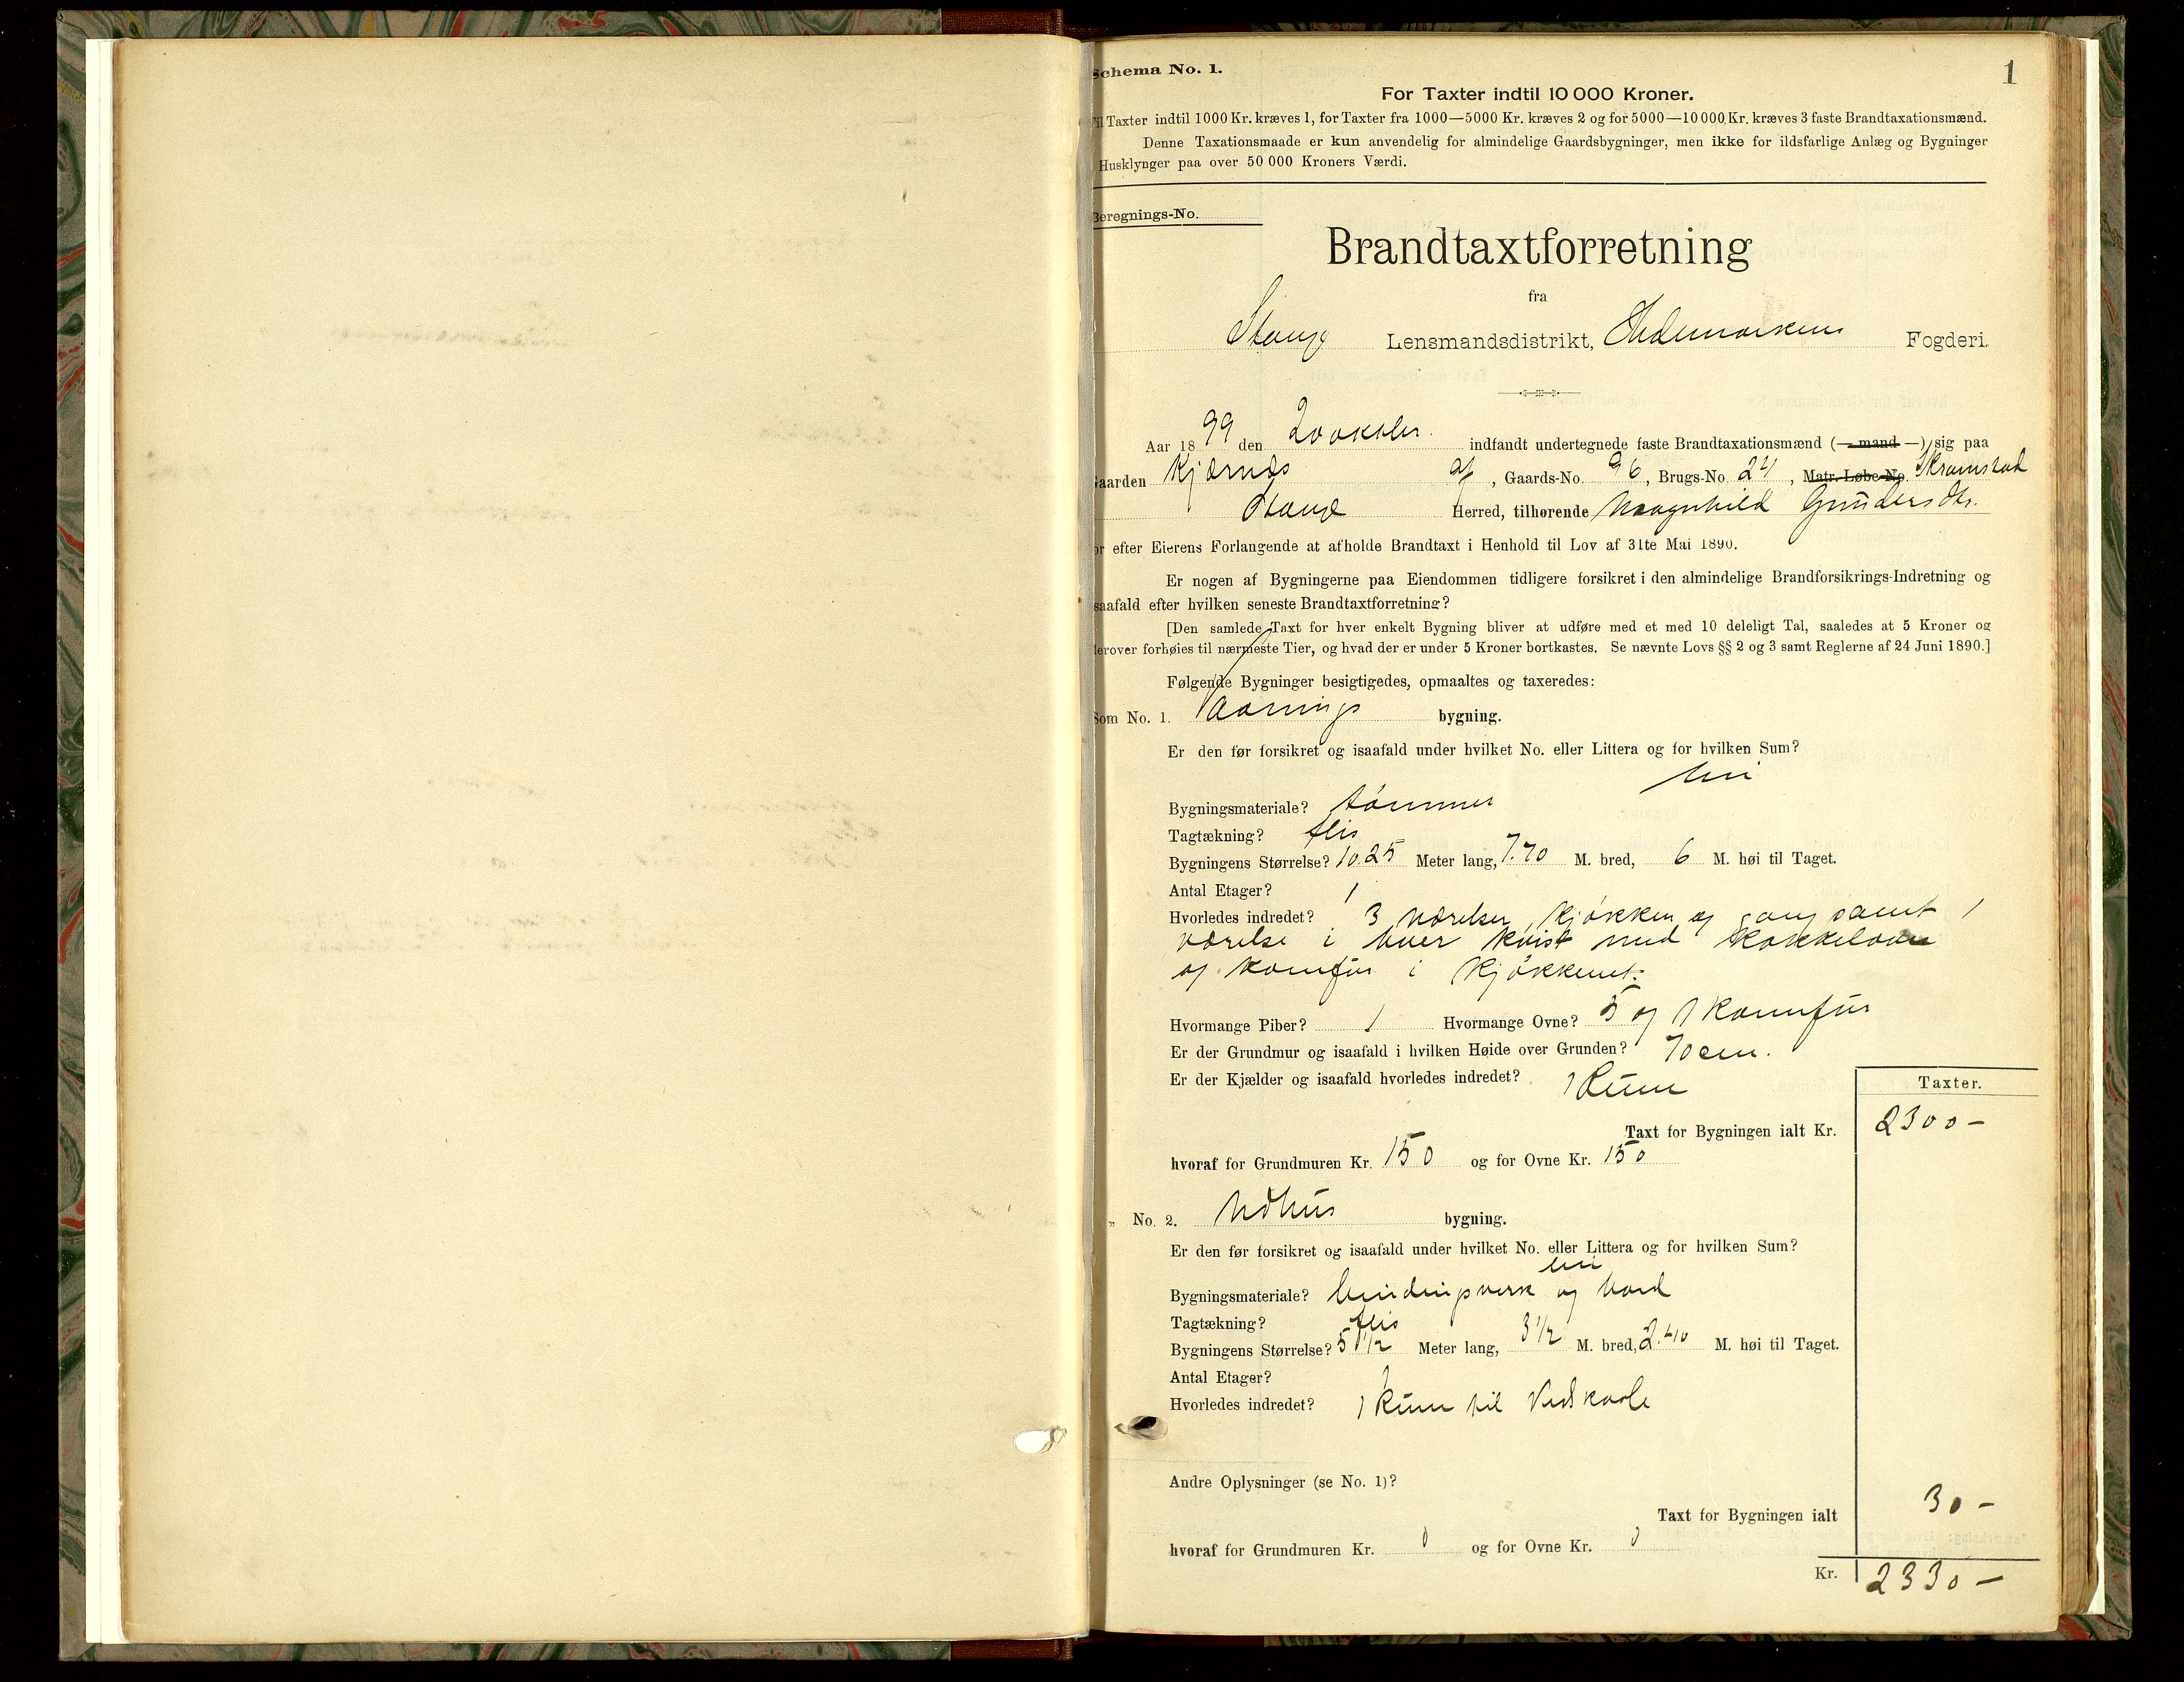 1
Schema No. 1.
For Taxter indtil 10 000 Kroner.
Til Taxter indtil 1000 Kr. kræves 1, for Taxter fra 1000—5000 Kr. kræves 2 og for 5000—10 000 Kr. kræves 3 faste Brandtaxationsmænd.
Denne Taxationsmaade er kun anvendelig for almindelige Gaardsbygninger, men ikke for ildsfarlige Anlæg og Bygninger
Husklynger paa over 50 000 Kroners Værdi.
Beregnings-No.
Brandtaxtforretning
fra
Stange Lensmandsdistrikt, Hedemarkens Fogderi.
Aar 1899 den 20 oktober indfandt undertegnede faste Brandtaxationsmænd (— mand —) sig paa
Gaarden Kjærnæs af, Gaards-No. 96, Brugs-No. 24, Matr.-Løbe-No. Skramstad
Stange Herred, tilhørende Magnhild Gundersdtr.
for efter Eierens Forlangende at afholde Brandtaxt i Henhold til Lov af 31te Mai 1890.
Er nogen af Bygningerne paa Eiendommen tidligere forsikret i den almindelige Brandforsikrings-Indretning og
saafald efter hvilken seneste Brandtaxtforretning?
[Den samlede Taxt for hver enkelt Bygning bliver at udføre med et med 10 deleligt Tal, saaledes at 5 Kroner og
derover forhøies til nærmeste Tier, og hvad der er under 5 Kroner bortkastes. Se nævnte Lovs §§ 2 og 3 samt Reglerne af 24 Juni 1890.]
Følgende Bygninger besigtigedes, opmaaltes og taxeredes:
Som No. 1. Vaanings bygning.
Er den før forsikret og isaafald under hvilket No. eller Littera og for hvilken Sum?
nei
Bygningsmateriale? tømmer
Tagtækning? flis
Bygningens Størrelse? 10.25 Meter lang, 7.70 M. bred, 6 M. høi til Taget.
Antal Etager? 1
Hvorledes indredet? 3 værelser, kjøkken og gang samt 1
værelse i hver kvist med kakkelovne
og komfur i kjøkkenet.
Hvormange Piber? 1 Hvormange Ovne? 5 og 1 komfur
Er der Grundmur og isaafald i hvilken Høide over Grunden? 70 cm.
Er der Kjælder og isaafald hvorledes indredet? 1 Rum
Taxter.
Taxt for Bygningen ialt Kr. 2300 –
hvoraf for Grundmuren Kr. 150 og for Ovne Kr. 150
„ No. 2. Udhus bygning.
Er den før forsikret og isaafald under hvilket No. eller Littera og for hvilken Sum?
nei
Bygningsmateriale? bindingsverk og bord
Tagtækning? flis
Bygningens Størrelse? 5 1/2 Meter lang, 3 1/2 M. bred, 2.40 M. høi til Taget.
Antal Etager? 1
Hvorledes indredet? 1 Rum til Vedskaale
Andre Oplysninger (se No. 1)?
Taxt for Bygningen ialt 30 –
hvoraf for Grundmuren Kr. 0 og for Ovne Kr. 0
Kr. 2330 –